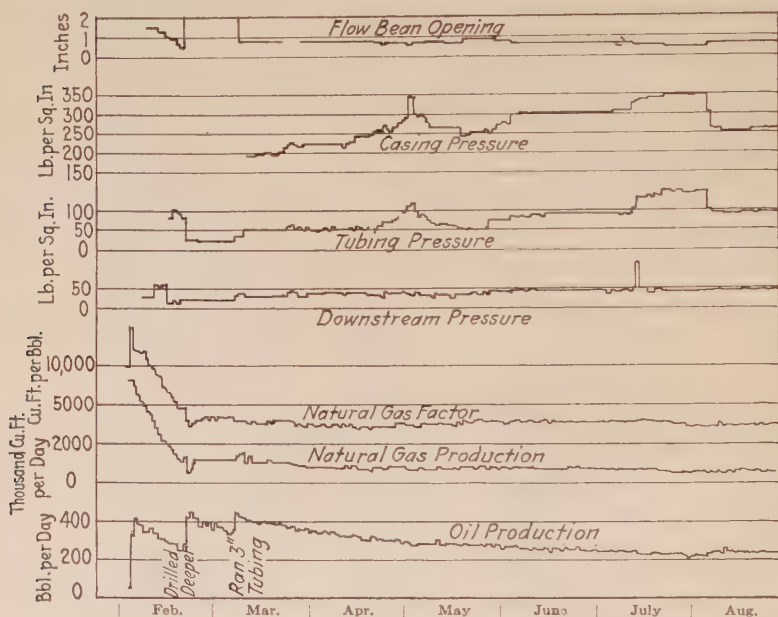 Inches
2
1
0
Flow Bean Opening
Lb. per Sq. In
350
300
250
200
150
Casing Pressure
Lb. per Sq. In.
100
50
0
Tubing Pressure
50
0
Downstream Pressure
Cu. Ft. per Bbl.
10,000
5000
Natural Gas Factor
Thousand Cu. Ft.
per Day
2000
0
Natural Gas Production
Bbl. per Day
400
200
0
Oil Production
Drilled
Deeper
Ran 3"
Tubing
Feb.
Mar.
Apr.
May
June
July
Aug.